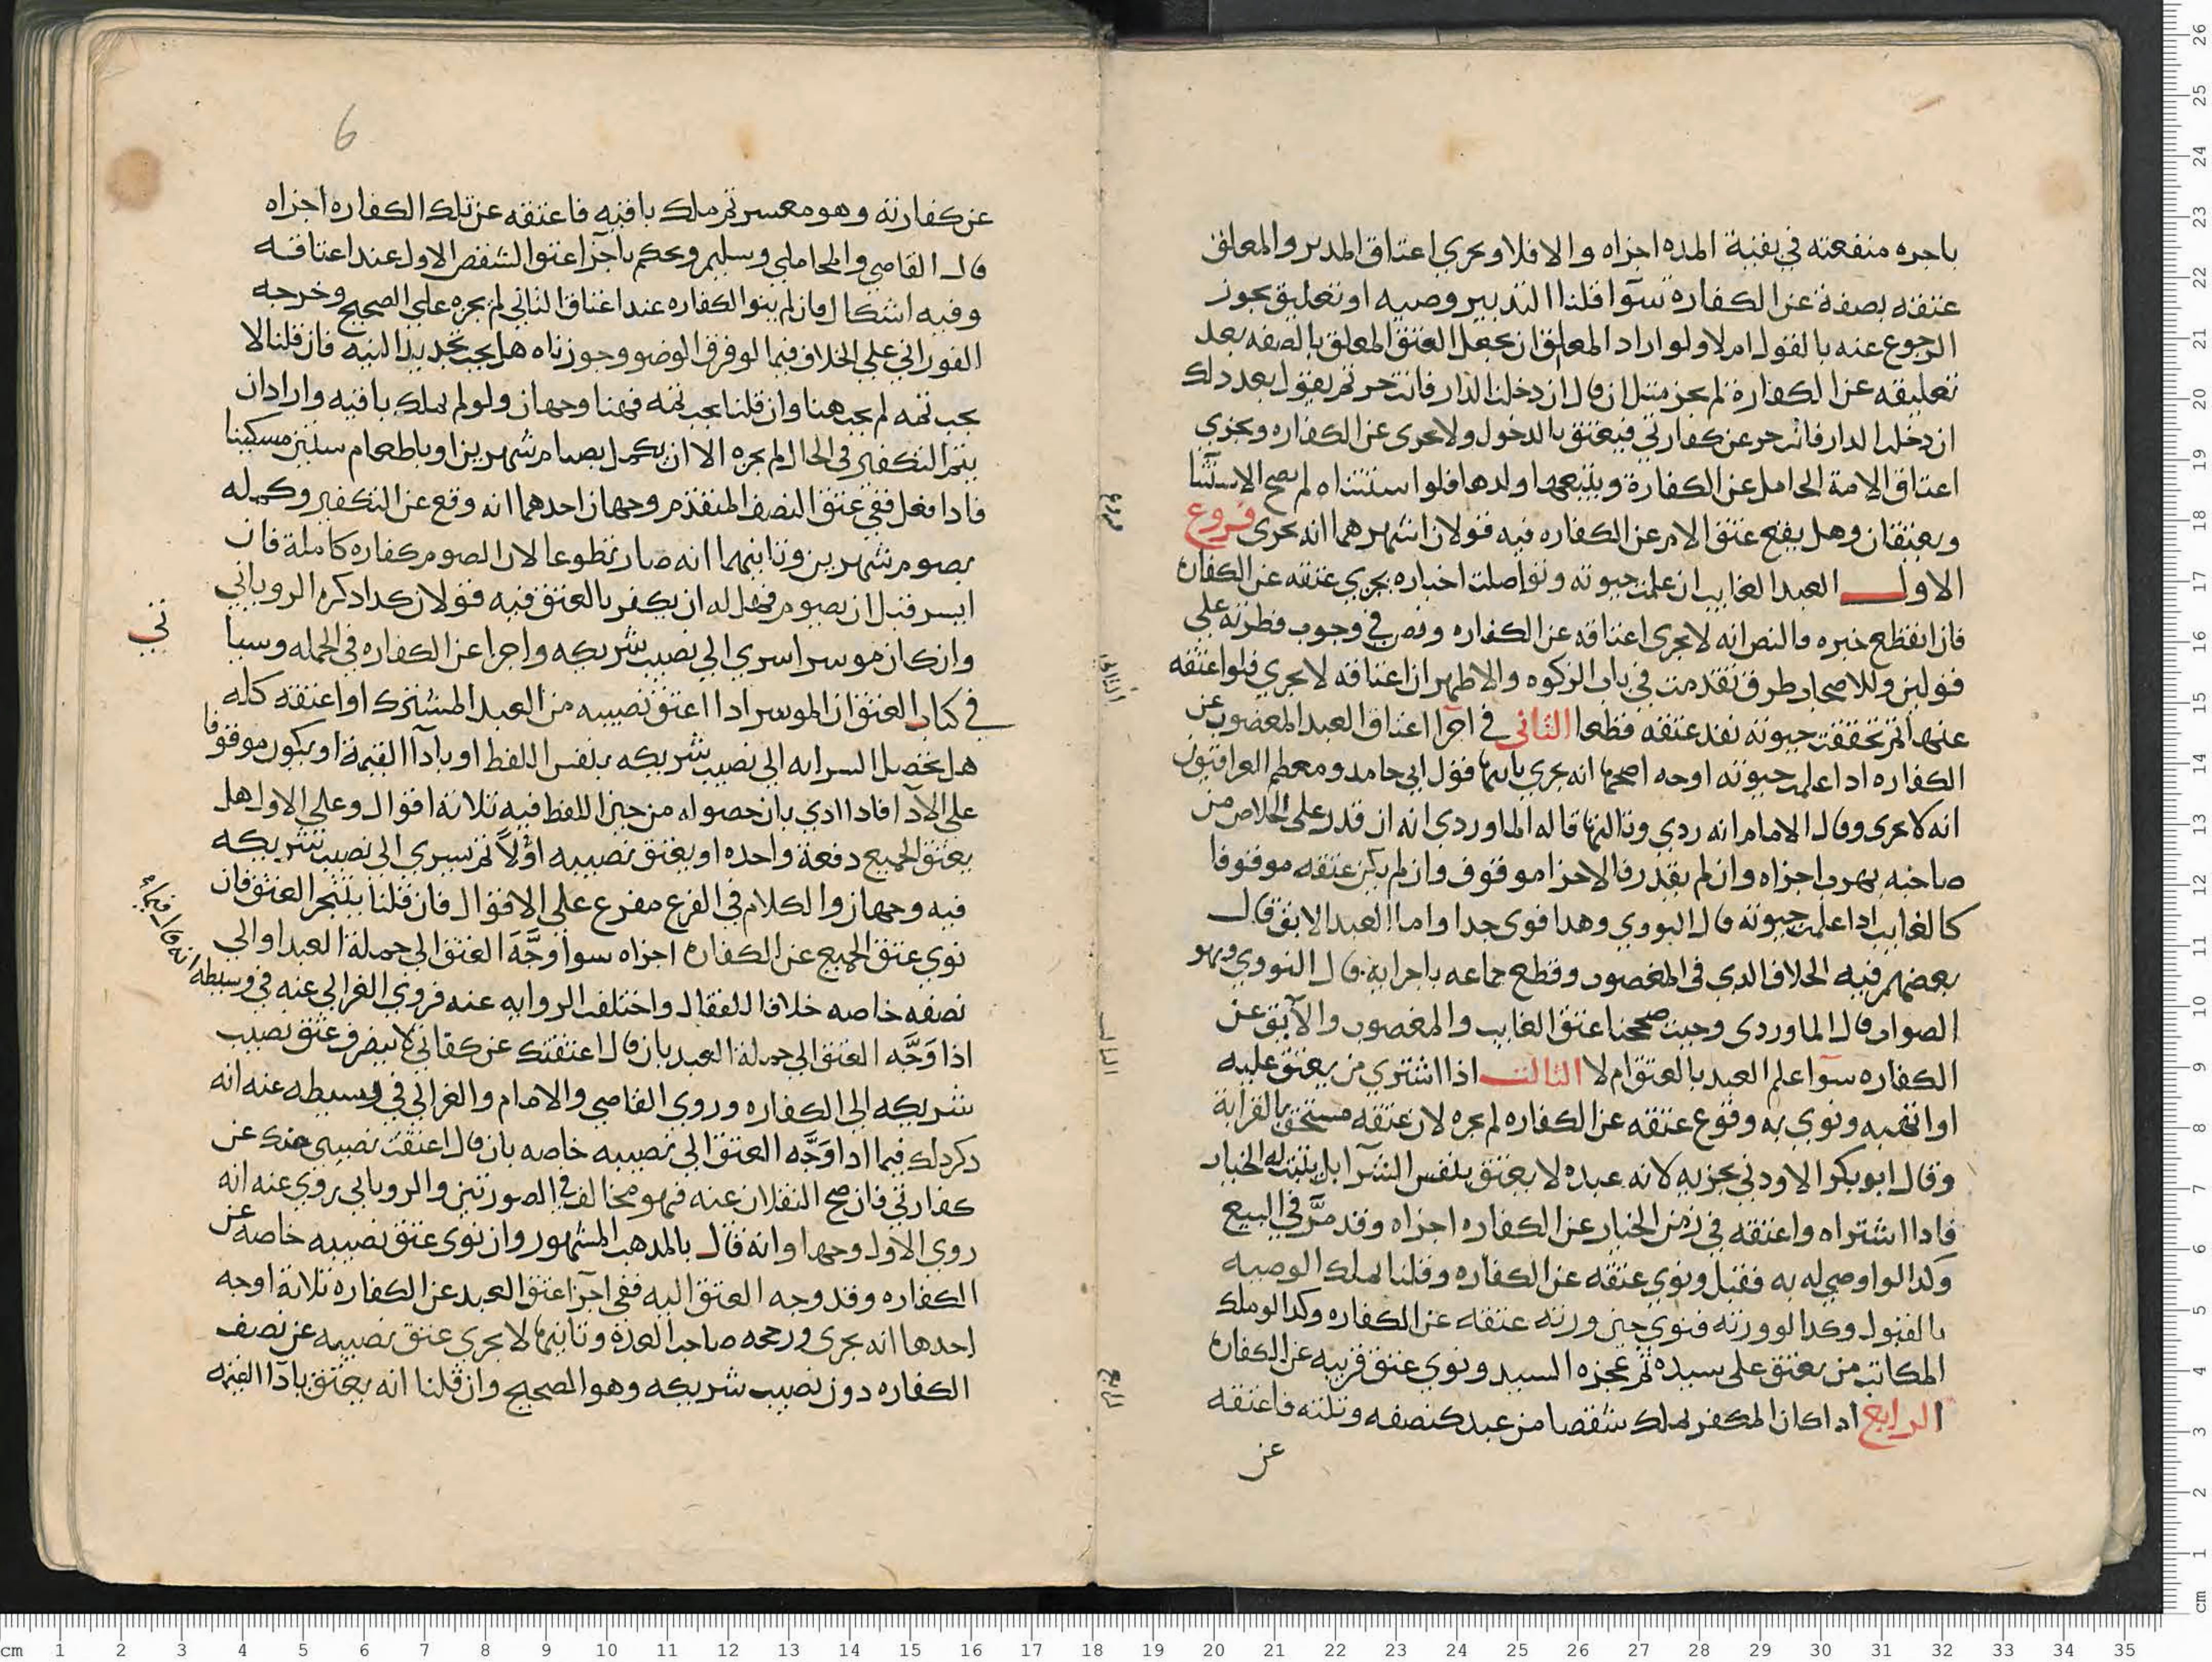 باجره منفعته في بقية المده اجزاه والا فلا ويجري اعتاق المدبر والمعلق
عتقه بصفة عن الكفارة سوآ قلنا التدبير وصيه او تعليق يجوز
الرجوع عنه بالقول ام لا ولو اراد المعلق ان يجعل العتق المعلق بالصفه بعد
تعليقه عن الكفارة لم يجز مثل ان قال ان دخلت الدار فانت حر ثم يقول بعد دلك
ان دخلت الدار فانت حر عن كفارتي فيعتق بالدخول ولا يجرى عن الكفاره ويجزي
اعتاق الامة الحامل عن الكفارة ويتبعها ولدها فلو استثناه لم يصح الاستثنا
ويعتقان وهل يقع عتق الام عن الكفاره فيه قولان اشهرهما انه يجرى فروع
الاول العبد الغايب ان علمت حيوته وتواصلت اخباره يجري عتقه عن الكفارة
فان انقطع خبره فالنص انه لا يجرى اعتاقه عن الكفاره ونص في وجوب فطرته على
قولين وللاصحاب طرق تقدمت في باب الزكوه والاظهر ان اعتاقه لا يجري فلو اعتقه
عنها ثم تحققت حيوته نفد عتقه قطعا الثاني في اجزا اعتاق العبد المغصوب عن
الكفاره اداعلمت حيوته اوجه اصحها انه يجري ثانيها قول ابي حامد ومعظم العراقيون
انه لا يجرى وقال الامام انه ردي وثالثها قاله الماوردي انه ان قدر على الخلاص من
صاحبه بهرب اجزاه وان لم يقدر فالاجزا موقوف وان لم يكن عتقه موقوفا
كالغايب اداعلمت حيوته قال النووي وهدا قوى جدا واما العبد الابق قال
بعضهم فيه الخلاف الدي في المغصوب وقطع جماعه باجرايه قال النووي وهو
الصواب قال الماوردى وحيث صححنا عتق الغايب والمغصوب والآبق عن
الكفاره سوآ علم العبد بالعتق ام لا الثالث اذا اشترى من يعتق عليه
او اتهبه ونوي به وقوع عتقه عن الكفاره لم يجره لان عتقه مستحق بالقرابة
وقال ابو بكر الاودني يجزيه لانه عبده لا يعتق بنفس الشرآ بل يثبت له الخيار
فادا اشتراه واعتقه في زمن الخيار عن الكفاره اجزاه وقد مرَّ في البيع
وكدا لو اوصي له به فقبل ونوي عتقه عن الكفاره وقلنا يملك الوصيه
بالقبول وكدا لو ورثه فنوي حين ورثه عتقه عن الكفاره وكدا لو ملك
المكاتب من يعتق على سيده ثم عجزه السيد ونوي عتق قريبه عن الكفارة
الرابع اداكان المكفر يملك شقصا من عبد كنصفه وثلثه فاعتقه
عن
فروع
الثاني
الثالث
الرابع
6
عن كفارته وهو معسر ثم ملك باقيه فاعتقه عن تلك الكفاره اجزاه
قال القاضي والمحاملي وسليم ويحكم باجزآ عتق الشقص الاول عند اعتاقه
وفيه اشكال فان لم ينو الكفاره عند اعتاق الثاني لم يجزه علي الصحيح وخرجه
الفوراني علي الخلاف فيما لو فرق الوضو وجوزناه هل يجب تجديد النيه فان قلنا لا
يجب ثمه لم يجب هنا وان قلنا يجب ثمه فهنا وجهان ولو لم يملك باقيه واراد ان
يتم التكفير في الحال لم يجزه الا ان يكمل بصيام شهرين او باطعام ستين مسكينا
فادا فعل ففي عتق النصف المتقدم وجهان احدهما انه وقع عن التكفير وكمله
بصوم شهرين وثانيهما انه صار تطوعا لان الصوم كفاره كاملة فان
ايسر قبل ان يصوم فهل له ان يكفر بالعتق فيه قولان كدا دكره الروياني
وان كان موسرا سري الي نصيب شريكه واجزا عن الكفاره في الجمله وسيا
تي
في كتاب العتق ان الموسر ادا اعتق نصيبه من العبد المشترك او اعتقه كله
هل تحصل السرايه الي نصيب شريكه بنفس اللفظ او بادآ القيمة او يكون موقوفا
علي الادآ فادا ادي بان حصوله من حين اللفظ فيه ثلاثة اقوال وعلي الاول هل
يعتق الجميع دفعة واحده او يعتق نصيبه اوّلاً ثم يسري الى نصيب شريكه
فيه وجهان والكلام في الفرع مفرع علي الاقوال فان قلنا بتنجز العتق فان
نوي عتق الجميع عن الكفارة اجزاه سوا وجَّهَ العتق الي جملة العبد او الي
نصفه خاصه خلافا للقفال واختلف الروايه عنه فروي الغزالي عنه في وسيطه انه قال فيما
اذا وَجَّه العتق الي جملة العبد بان قال اعتقتك عن كفارتي لا ينصرف عتق نصيب
شريكه الى الكفاره وروي القاضي والامام والغزالي في وسيطه عنه انه
دكر دلك فيما اذا وَجَّه العتق الي نصيبه خاصه بان قال اعتقت نصيبي منك عن
كفارتي فان صح النقلان عنه فهو مخالف في الصورتين والروياني روي عنه انه
روي الاول وجها وانه قال بالمدهب المشهور وان نوى عتق نصيبه خاصه عن
الكفاره وقد وجه العتق اليه ففي اجزآ عتق العبد عن الكفاره ثلاثة اوجه
احدها انه يجرى ورجحه صاحب العدة وثانيها لا يجري عتق نصيبه عن نصف
الكفاره دون نصيب شريكه وهو الصحيح وان قلنا انه يعتق بادآ القيمه